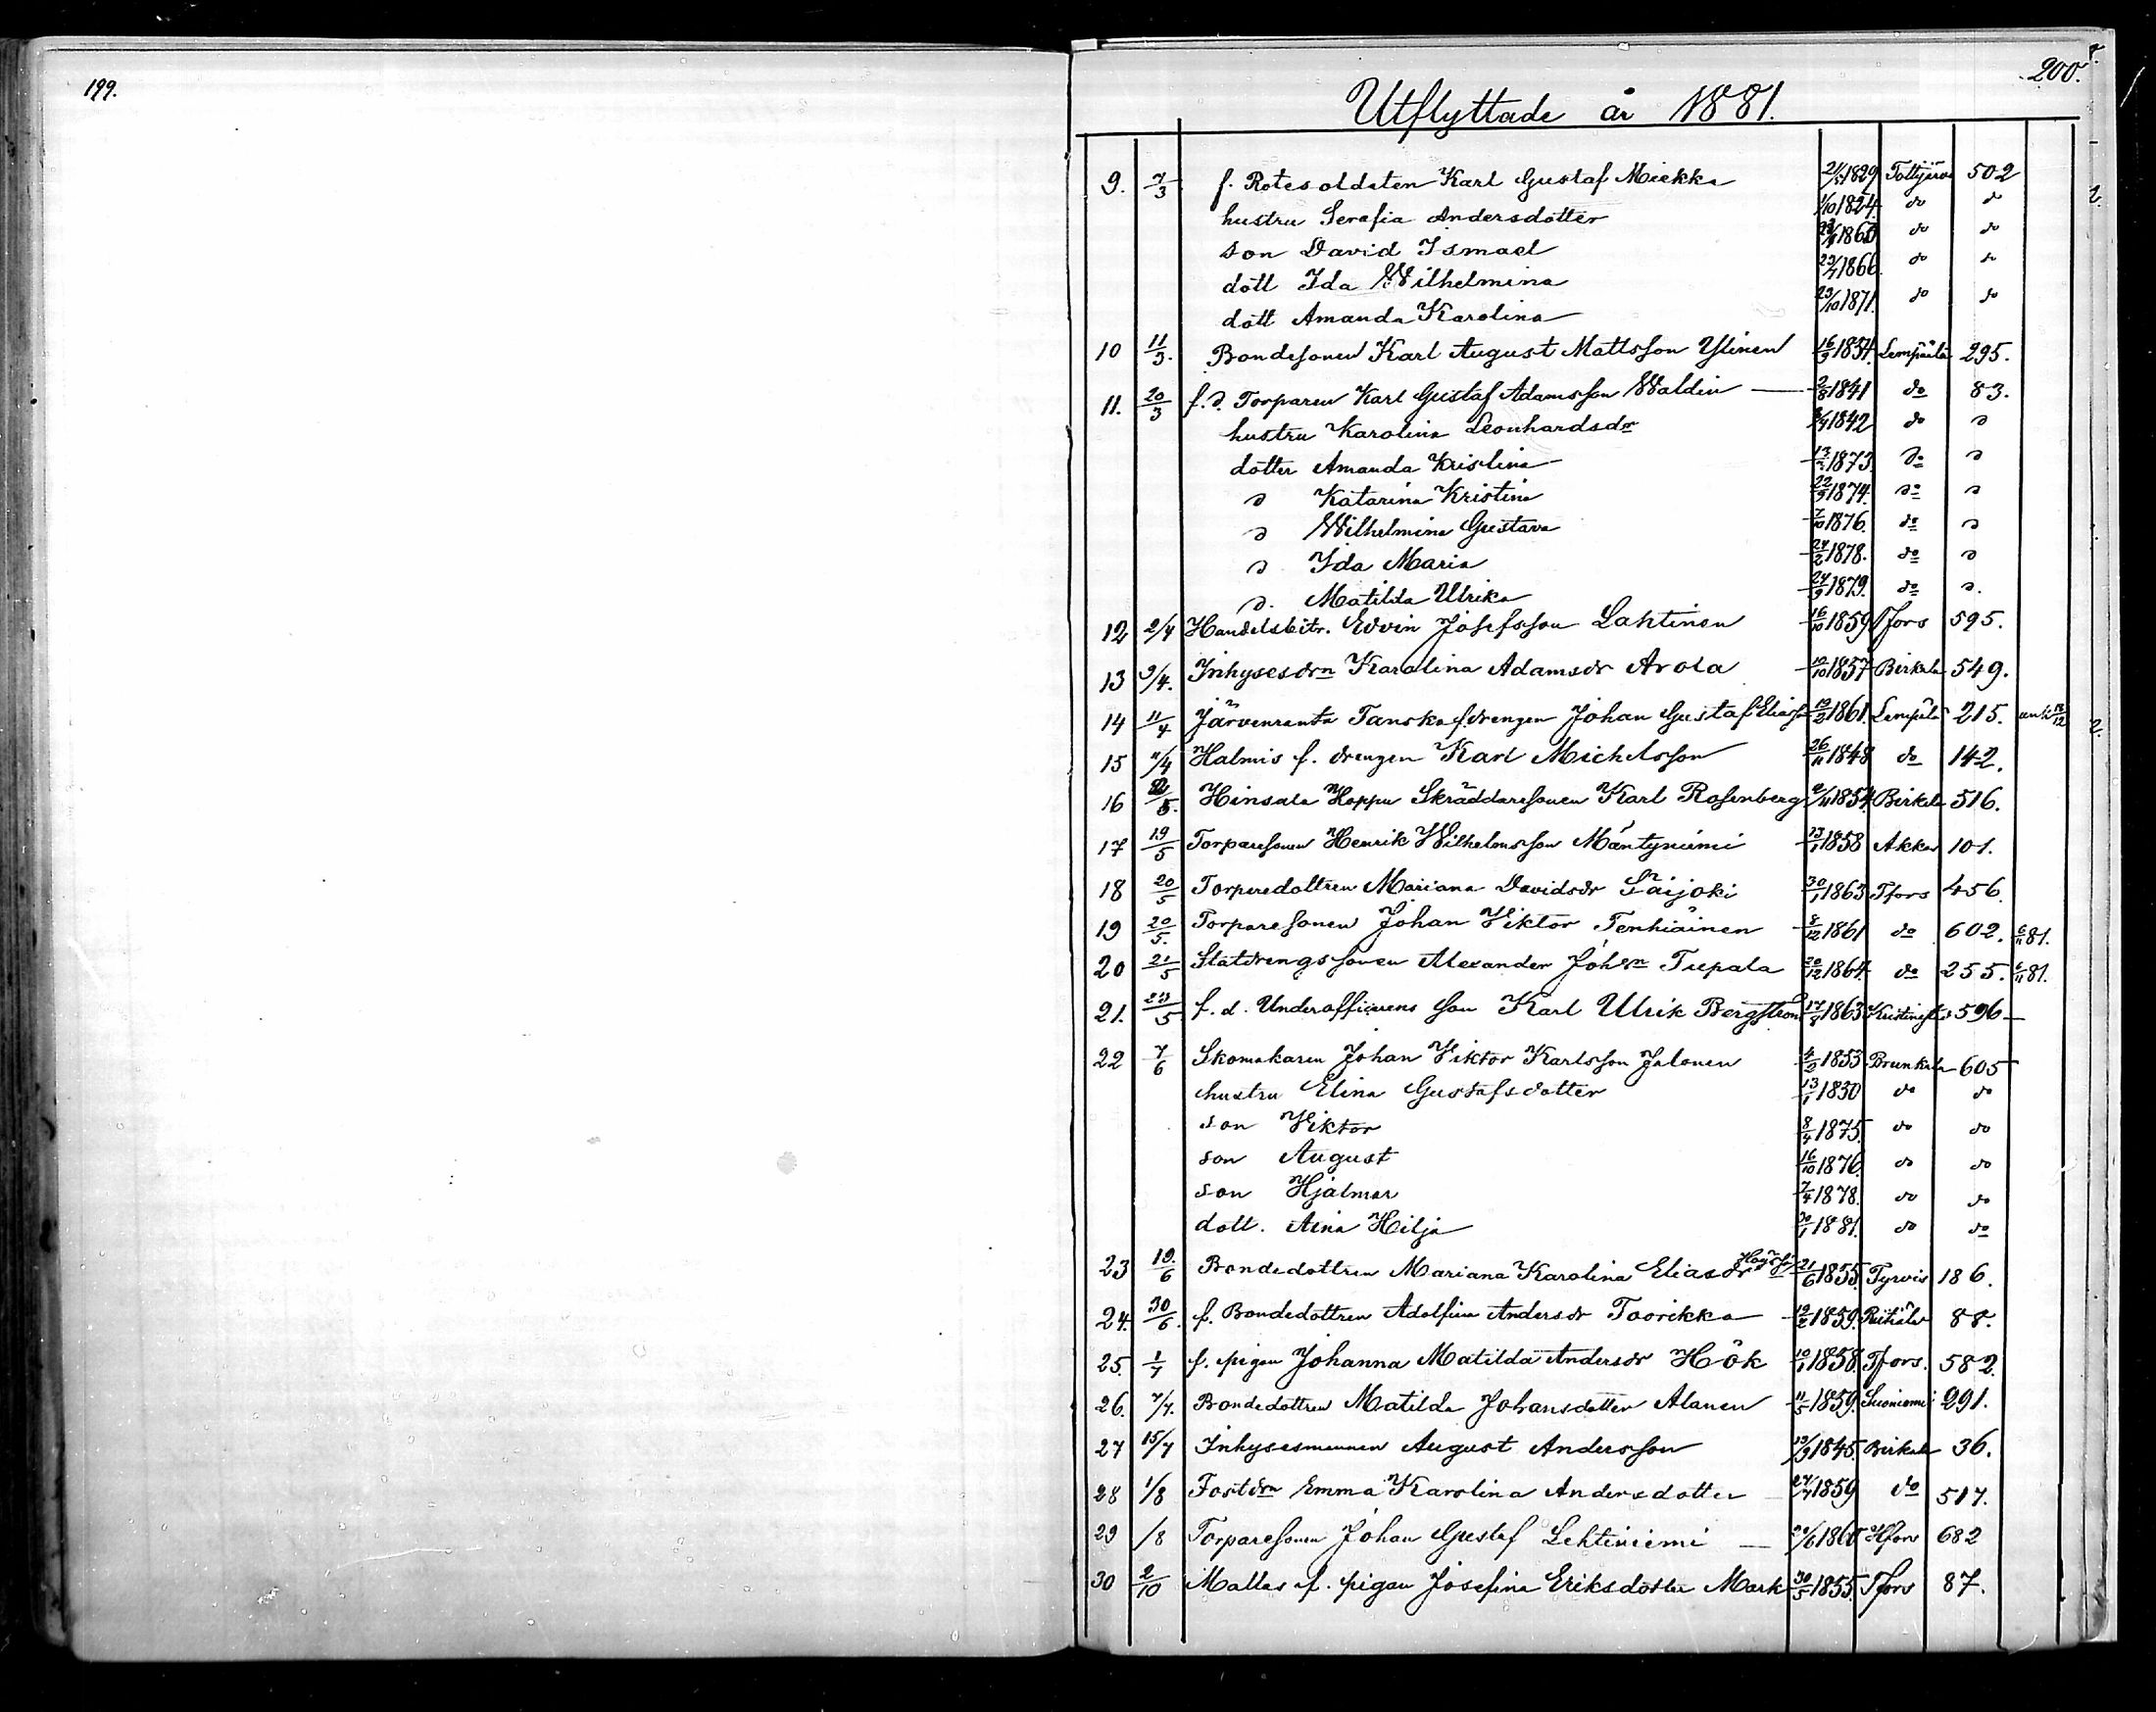 199.
200.
Utflyttade år 1881.
9. 7/3 f. Rotesoldaten Karl Gustaf Miekka 1829 Tottijärvi 502
hustru Serafia Andersdotter /10 1824 do do
son David Ismael 1860 do do
dott Ida Wilhelmina 23/7 1866 do do
dott Amanda Karolina 23/10 1871. do do
10 11/3. Bondesonen Karl August Mattsson Ylinen 16/3 1854 Lempäälä 295.
11. 20/3 f.d. Torparen Karl Gustaf Adamsson Waldin 2/8 1841 do 83.
hustru Karolina Leonhardsdr 1842 do d
dotter Amanda Kristina 1873 do d
d Katarina Kristina 22/9 1874 do d
d Wilhelmina Gustava 7/10 1876. do d
d Ida Maria 24/2 1878. do d
d. Matilda Ulrika 24/9 1879. do d.
12 2/4 Handelsbitr. Edvin Josefsson Lahtinen 16/10 1859 Tfors 595.
13 9/4. Inhysesdrn Karolina Adamsdr Arola 1857 Birkala 549.
14 11/4 Järvenranta Tanska f. drengen Johan Gustaf Eliasson 1861. Lempäälä 215.
15 11/4 Halmis f. drengen Karl Michelsson 26/11 1848 do 142.
16 Hinsala Hoppu Skräddaresonen Karl Rosenberg 2/11 1854 Birkala 516.
17 19/5 Torparesonen Henrik Wilhelmsson Mäntyniemi 13/1 1858 Akkas 101.
18 20/5 Torparedottren Mariana Davidsdr Säijoki 30/1 1863 Tfors 456.
19 20/5. Torparesonen Johan Viktor Tenhiäinen 8/12 1861 do 602. 6/11 81.
20 21/5 Statdrengssonen Alexander Johsn Tupala 20/12 1864 do 255. 6/11 81.
21. 23/5 f.d. Underofficerens son Karl Ulrik Bergström 17/8 1863 Kristinestd 596
22 7/6 Skomakaren Johan Viktor Karlsson Jalonen 1853 Brunkala 605
hustru Elina Gustafsdotter 13/1 1830 do do
son Viktor 8/4 1875 do do
son August 16/10 1876. do do
son Hjalmar 7/4 1878. do do
dott. Aina Hilja 30/1 1881. do do
23 19./6 Bondedottren Mariana Karolina Eliasdr 21/6 1855 Tyrvis 186.
24. 30/6. f. Bondedottren Adolfina Andersdr Taorikka 19/2 1859. 88.
25. 1/7 f. pigan Johanna Matilda Andersdr Hök 10/1 1858. Tfors. 582.
26. 7/7. Bondedottren Matilda Johansdotter Alanen 11/5 1859. Suoniemi 291.
27 15/7 Inhysesmannen August Andersson 13/9 1845. Birkala 36.
28 1/8 Fostdrn Emma Karolina Andersdotter 27/7 1859 do 517.
29 /8 Torparesonen Johan Gustaf Lehtiniemi 1860 Hfors 682
30 2/10 Mattas f. pigan Josefina Eriksdotter Mark 30/5 1855. Tfors 87.